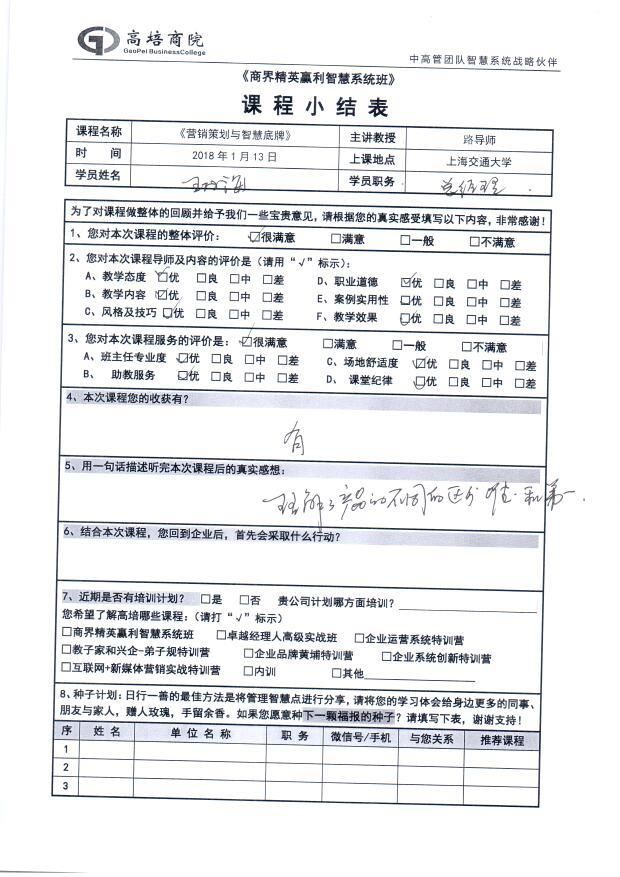 高培商院
GaoPei BusinessCollege
中高管团队智慧系统战略伙伴
《商界精英赢利智慧系统班》
课程小结表
课程名称 《营销策划与智慧底牌》 主讲教授 路导师
时 间 2018年1月13日 上课地点 上海交通大学
学员姓名 学员职务 总经理
为了对课程做整体的回顾并给予我们一些宝贵意见，请根据您的真实感受填写以下内容，非常感谢！
1、您对本次课程的整体评价： ☑很满意 □满意 □一般 □不满意
2、您对本次课程导师及内容的评价是（请用“√”标示）：
A、教学态度 ☑优 □良 □中 □差 D、职业道德 ☑优 □良 □中 □差
B、教学内容 ☑优 □良 □中 □差 E、案例实用性 ☑优 □良 □中 □差
C、风格及技巧 ☑优 □良 □中 □差 F、教学效果 ☑优 □良 □中 □差
3、您对本次课程服务的评价是： ☑很满意 □满意 □一般 □不满意
A、班主任专业度 ☑优 □良 □中 □差 C、场地舒适度 ☑优 □良 □中 □差
B、 助教服务 ☑优 □良 □中 □差 D、课堂纪律 ☑优 □良 □中 □差
4、本次课程您的收获有？
有
5、用一句话描述听完本次课程后的真实感想：
产品的不同的区分 唯一和第一.
6、结合本次课程，您回到企业后，首先会采取什么行动？
7、近期是否有培训计划？ □是 □否 贵公司计划哪方面培训？
您希望了解高培哪些课程：（请打“√”标示）
□商界精英赢利智慧系统班 □卓越经理人高级实战班 □企业运营系统特训营
□教子家和兴企-弟子规特训营 □企业品牌黄埔特训营 □企业系统创新特训营
□互联网+新媒体营销实战特训营 □内训 □其他
8、种子计划：日行一善的最佳方法是将管理智慧点进行分享，请将您的学习体会给身边更多的同事、
朋友与家人，赠人玫瑰，手留余香。如果您愿意种下一颗福报的种子？请填写下表，谢谢支持！
序 姓 名 单 位 名 称 职 务 微信号/手机 与您关系 推荐课程
1
2
3